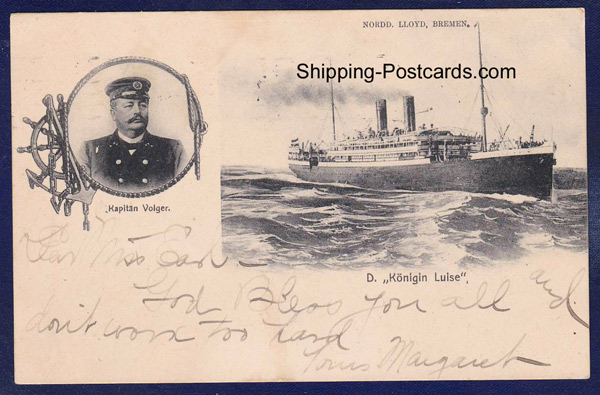 NORDD. LLOYD, BREMEN.
Shipping-Postcards.com
Kapitän Volger.
D. „Königin Luise“,
Dear Miss
God Bless you all and
don't work too hard
Yours Margaret